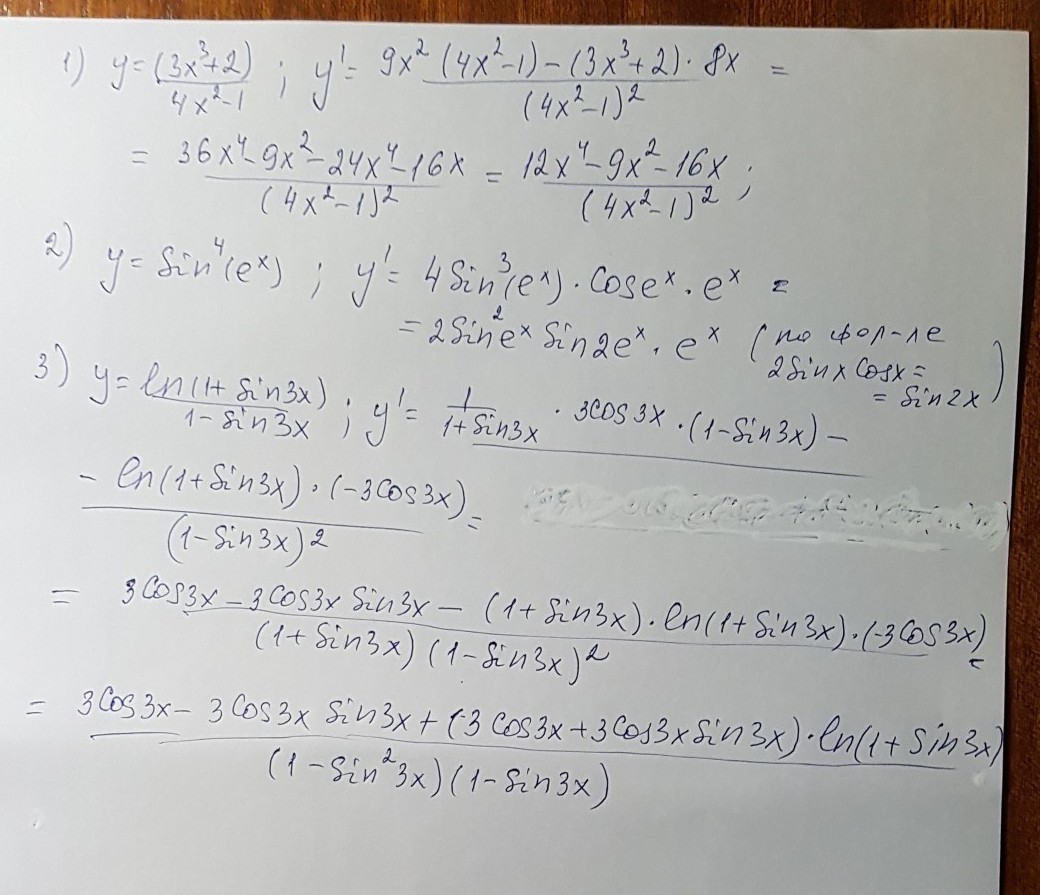 1) y = (3x³+2)/(4x²-1) ; y' = (9x² (4x²-1) - (3x³+2) · 8x)/(4x²-1)² =
= (36x⁴-9x²-24x⁴-16x)/(4x²-1)² = (12x⁴-9x²-16x)/(4x²-1)² ;
2) y = Sin⁴(eˣ) ; y' = 4Sin³(eˣ) · Coseˣ · eˣ =
= 2Sin²eˣ Sin2eˣ · eˣ (по фор-ле
2Sinx Cosx =
= Sin2x)
3) y = ln(1+ Sin3x)/(1-Sin3x) ; y' = 1/(1+Sin3x) · 3Cos3x · (1-Sin3x) -
- ln(1+Sin3x) · (-3Cos3x) =
(1-Sin3x)²
= (3Cos3x - 3Cos3x Sin3x - (1+Sin3x) · ln(1+Sin3x) · (-3Cos3x))/((1+Sin3x)(1-Sin3x)²) =
= (3Cos3x - 3Cos3x Sin3x + (3Cos3x+3Cos3xSin3x) · ln(1+Sin3x))/((1-Sin²3x)(1-Sin3x))